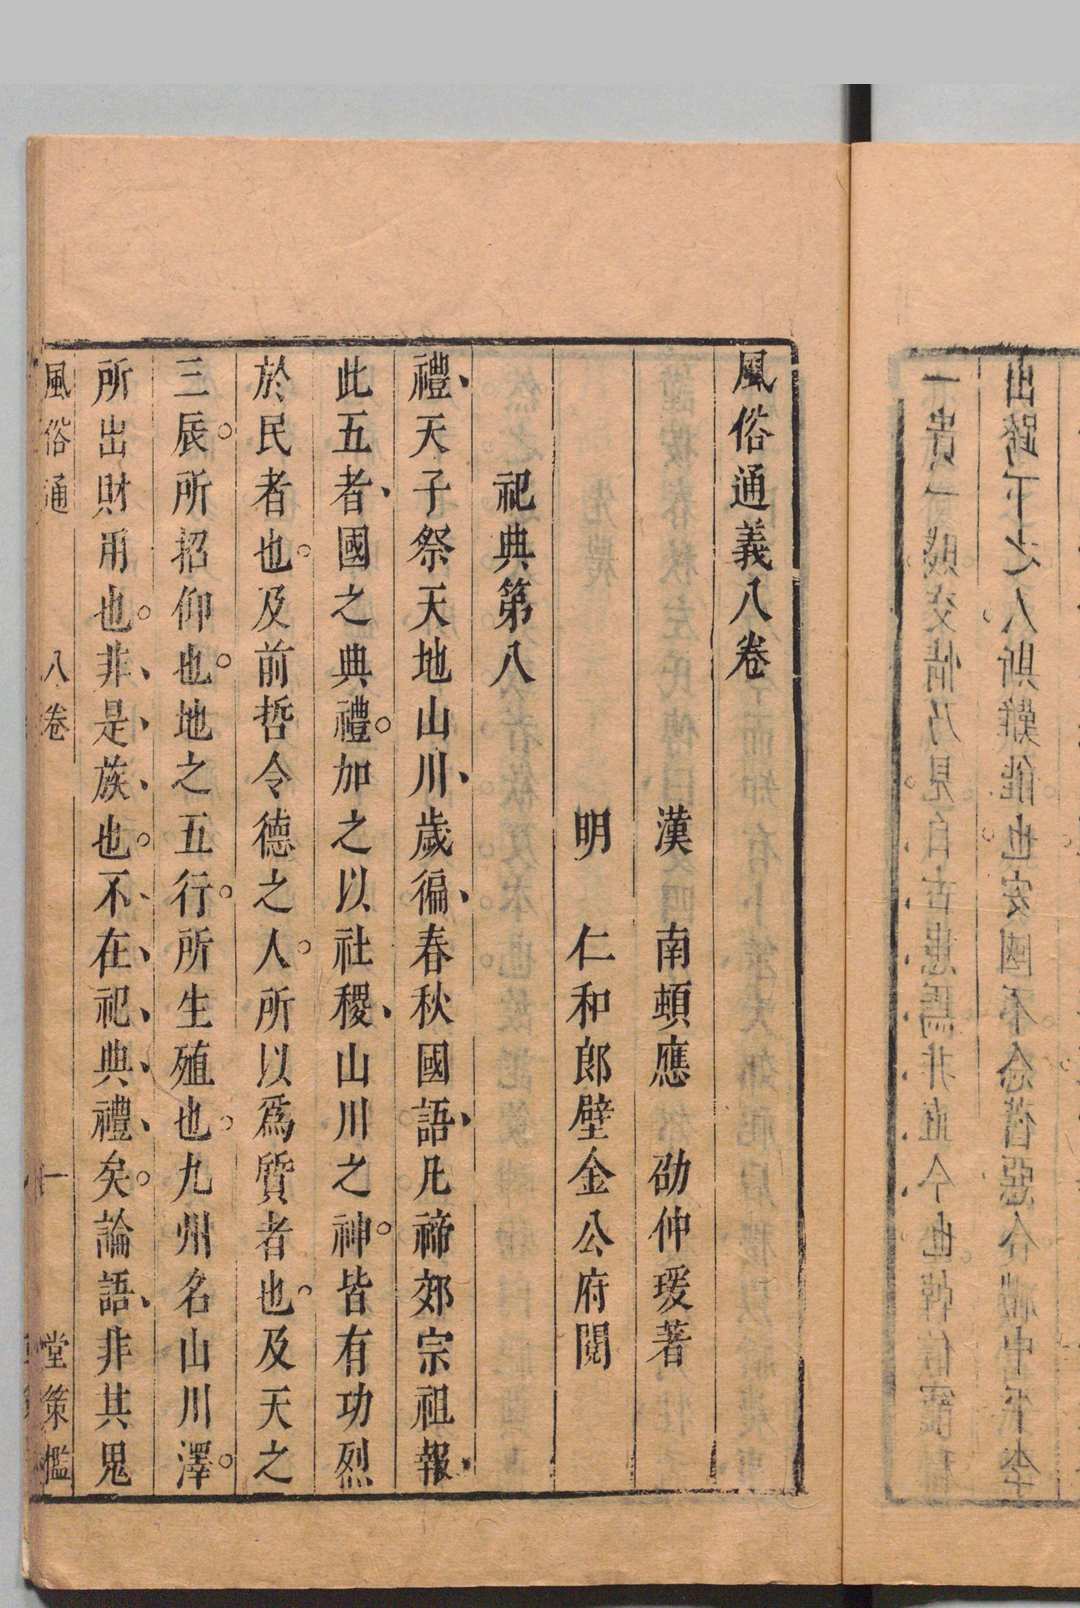 風俗通義八卷
漢　南頓應　劭仲瑗著
明　仁和郎壁金公府閱
祀典第八
禮、天子祭天地山川、歲徧、春秋國語、凡禘郊宗祖報、
此五者、國之典禮。加之以社稷、山川之神。皆有功烈
於民者也。及前哲令德之人。所以爲質者也。及天之
三辰。所招仰也。地之五行。所生殖也。九州名山川澤。
所出財用也。非、是、族、也。不、在、祀、典、禮、矣。論語、非其鬼
風俗通　八卷　一　堂策檻